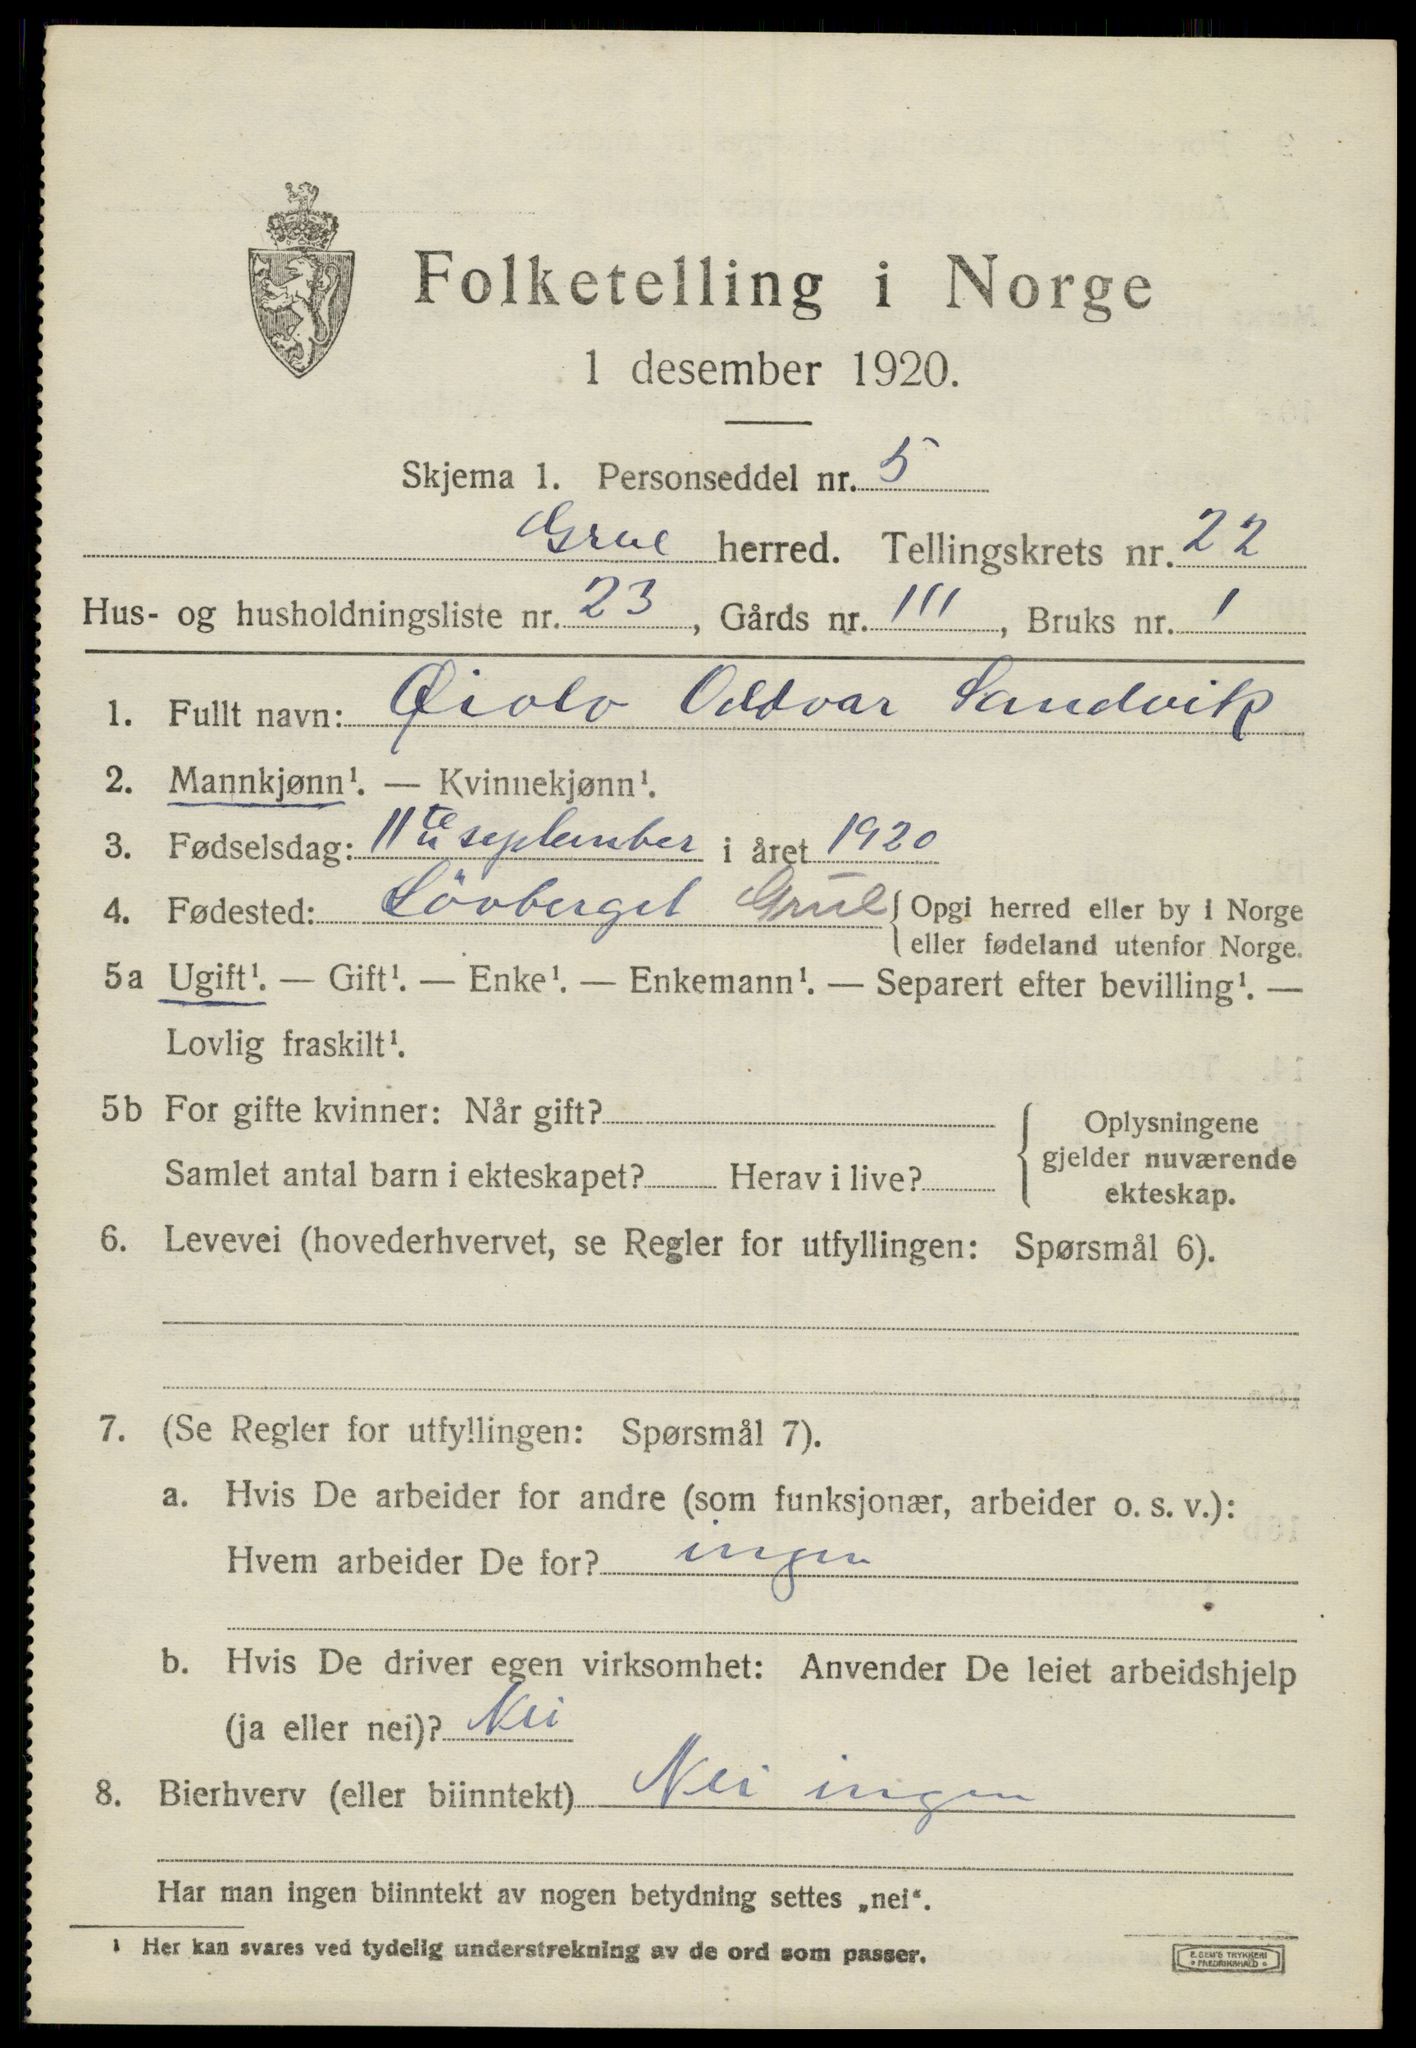 Folketelling i Norge
1 desember 1920.
Skjema 1. Personseddel nr. 5
Grue herred. Tellingskrets nr. 22
Hus- og husholdningsliste nr. 23, Gårds nr. 111, Bruks nr. 1
1. Fullt navn: Øiolv Oddvar Sandvik
2. Mannkjønn¹. — Kvinnekjønn¹.
3. Fødselsdag: 11te september i året 1920
4. Fødested: Lövberget Grue { Opgi herred eller by i Norge
eller fødeland utenfor Norge.
5a Ugift¹. — Gift¹. — Enke¹. — Enkemann¹. — Separert efter bevilling¹. —
Lovlig fraskilt¹.
5b For gifte kvinner: Når gift?
Samlet antal barn i ekteskapet? Herav i live?
{ Oplysningene
gjelder nuværende
ekteskap.
6. Levevei (hovederhvervet, se Regler for utfyllingen: Spørsmål 6).
7. (Se Regler for utfyllingen: Spørsmål 7).
a. Hvis De arbeider for andre (som funksjonær, arbeider o. s. v.):
Hvem arbeider De for? ingen
b. Hvis De driver egen virksomhet: Anvender De leiet arbeidshjelp
(ja eller nei)? Nei
8. Bierhverv (eller biinntekt) Nei ingen
Har man ingen biinntekt av nogen betydning settes „nei“.
¹ Her kan svares ved tydelig understrekning av de ord som passer.
E. SEM'S TRYKKERI
FREDRIKSHALD